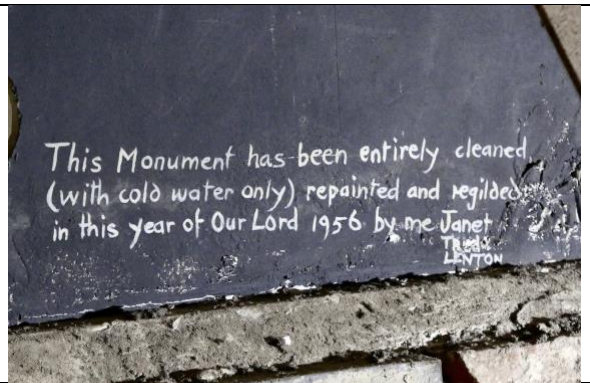 This Monument has been entirely cleaned,
(with cold water only) repainted and regilded
in this year of Our Lord 1956 by me Janet
LENTON